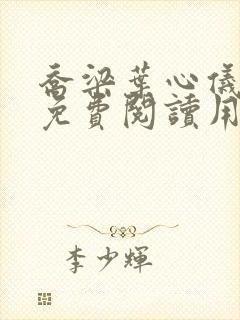 喬梁葉心儀
免費閱讀用
李少輝